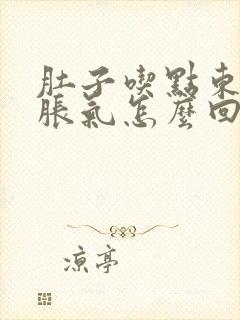 肚子喫點東
脹氣怎麼回
涼亭